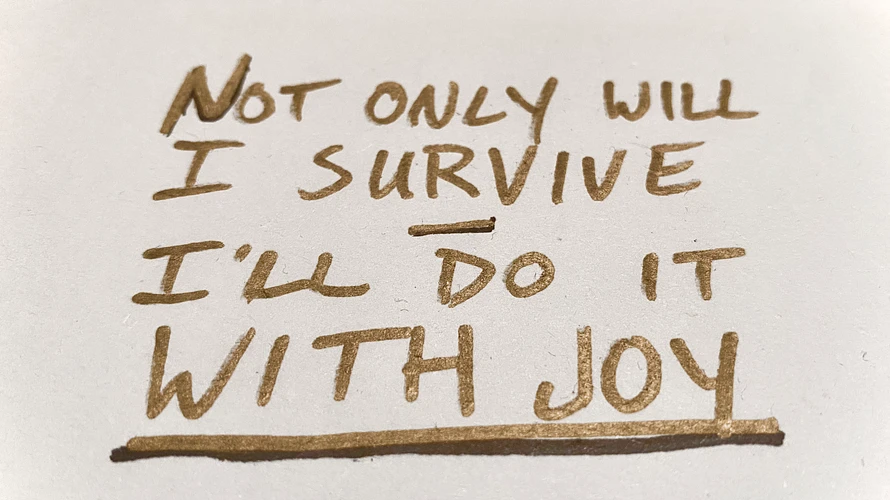 NOT ONLY WILL
I SURVIVE
—
I'LL DO IT
WITH JOY